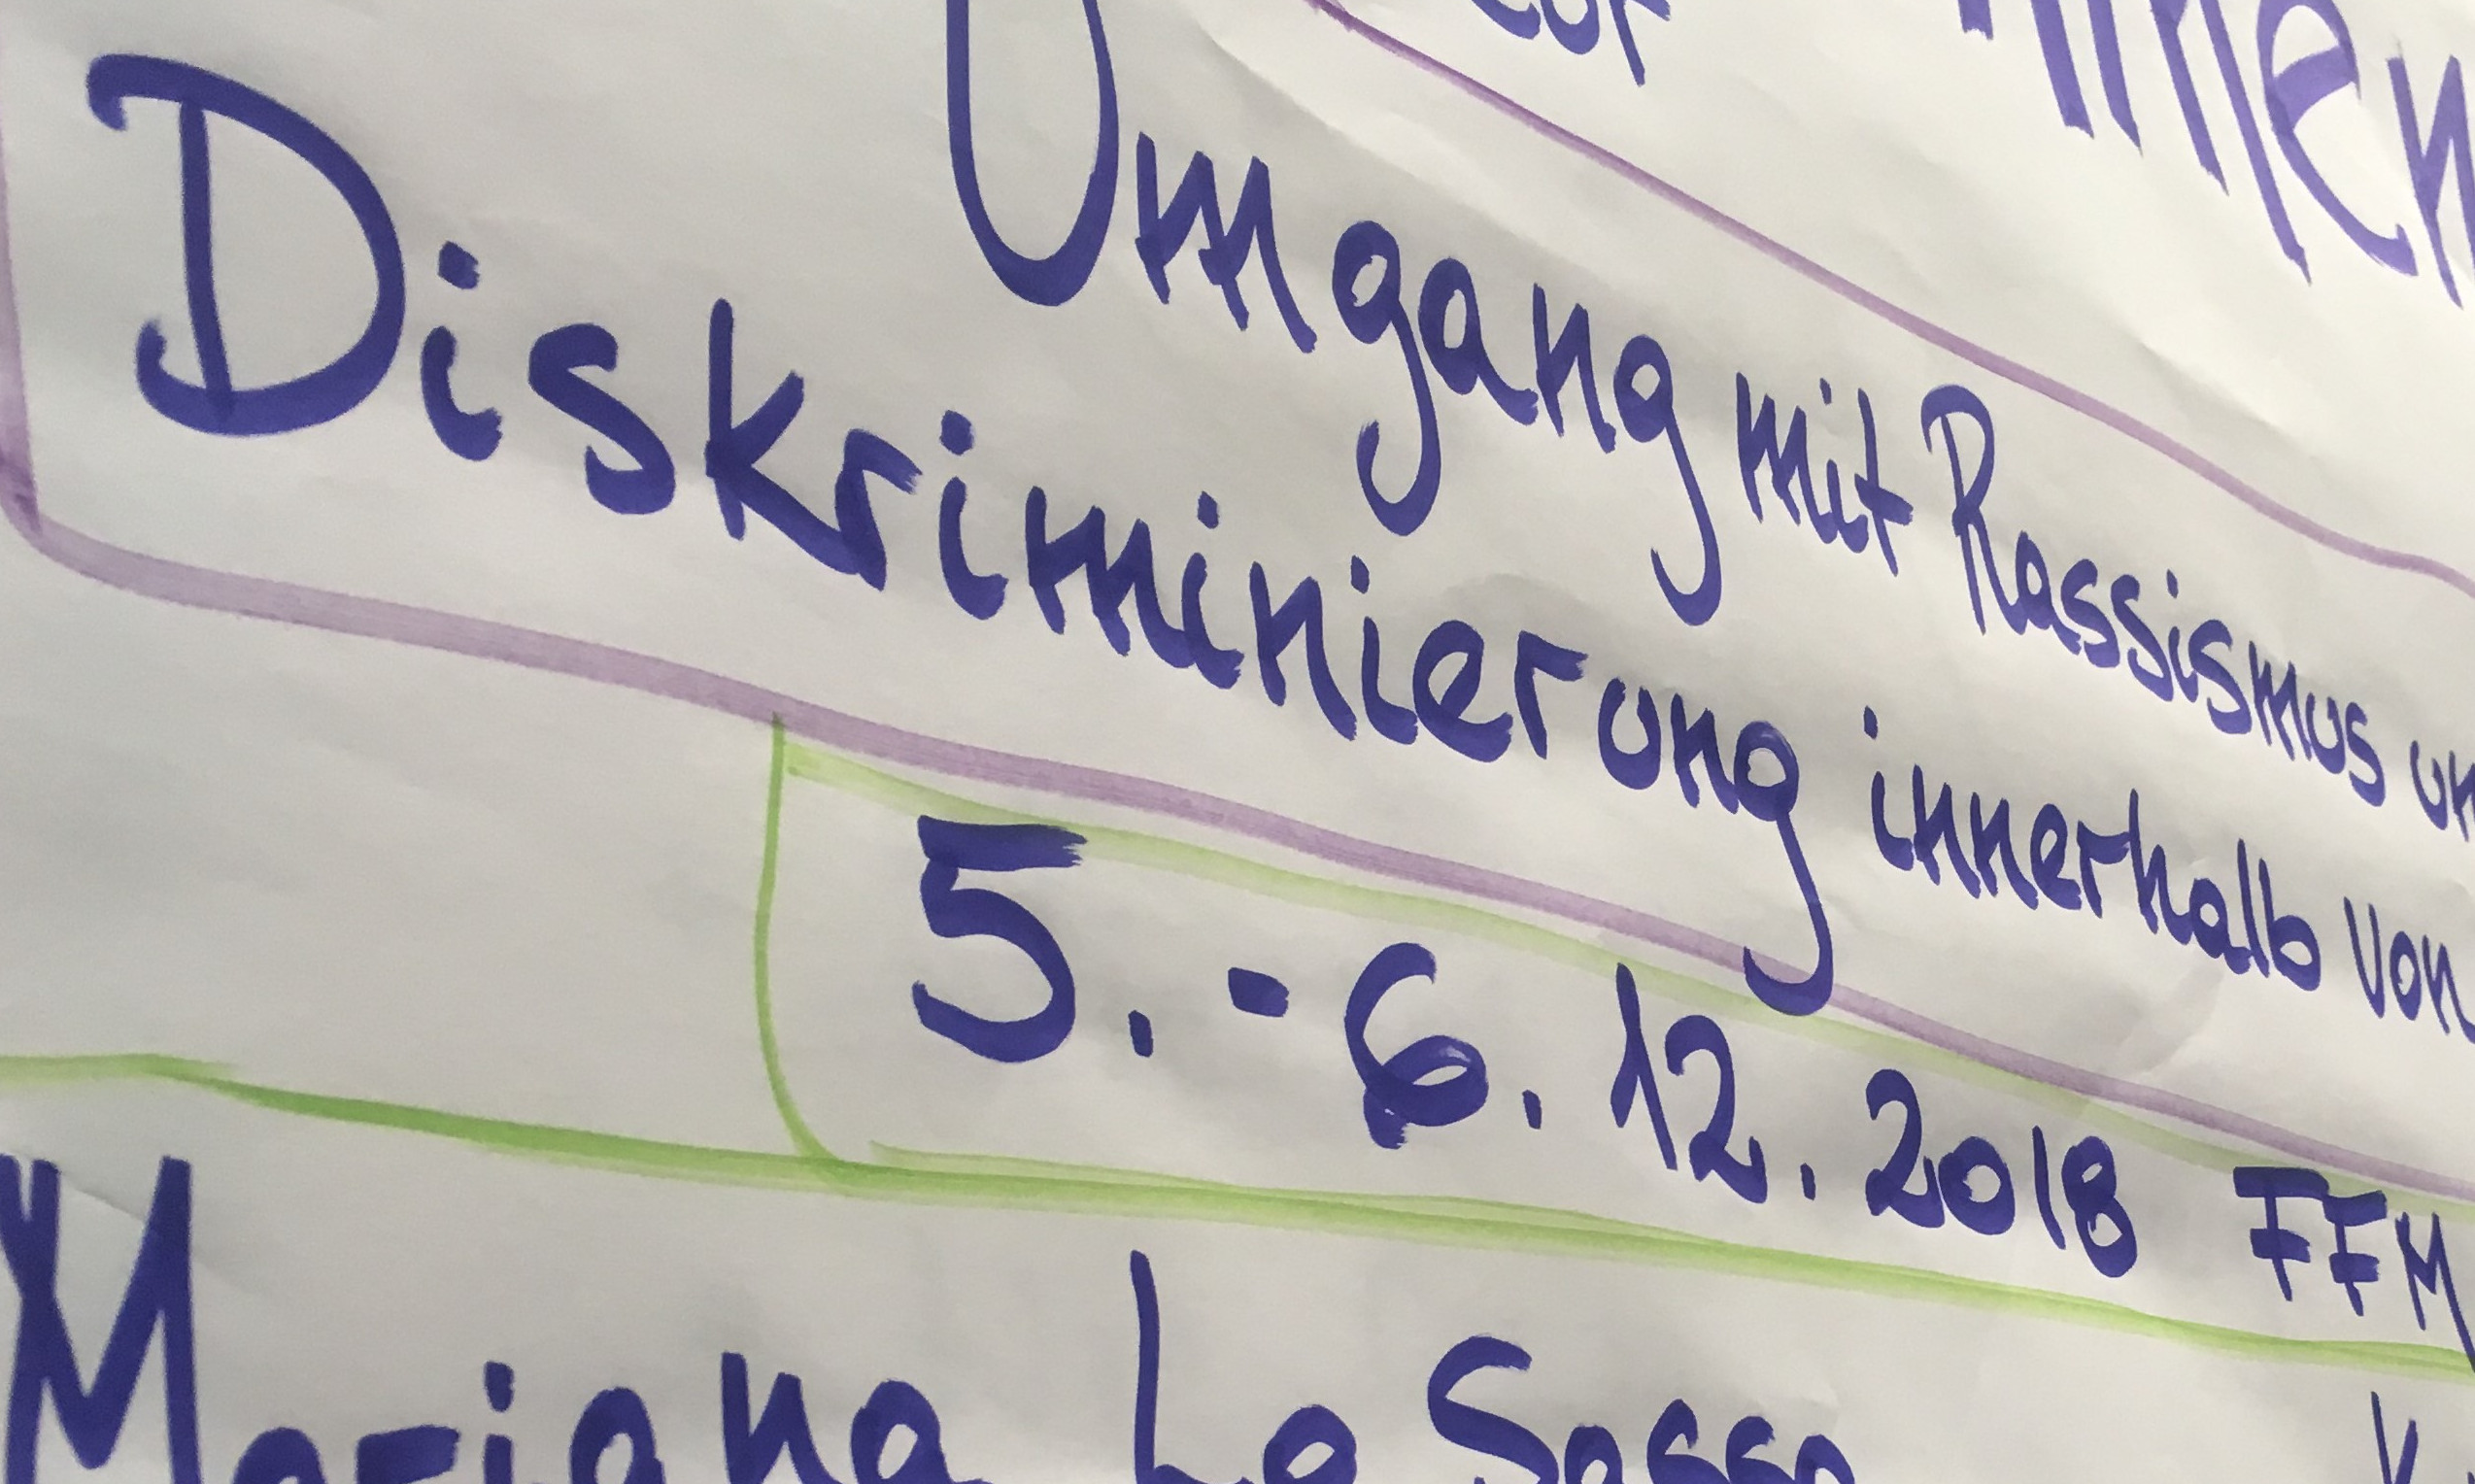 Umgang mit Rassismus
Diskriminierung innerhalb von
5.-6.12.2018 FFM
Mariana Lo Sasso